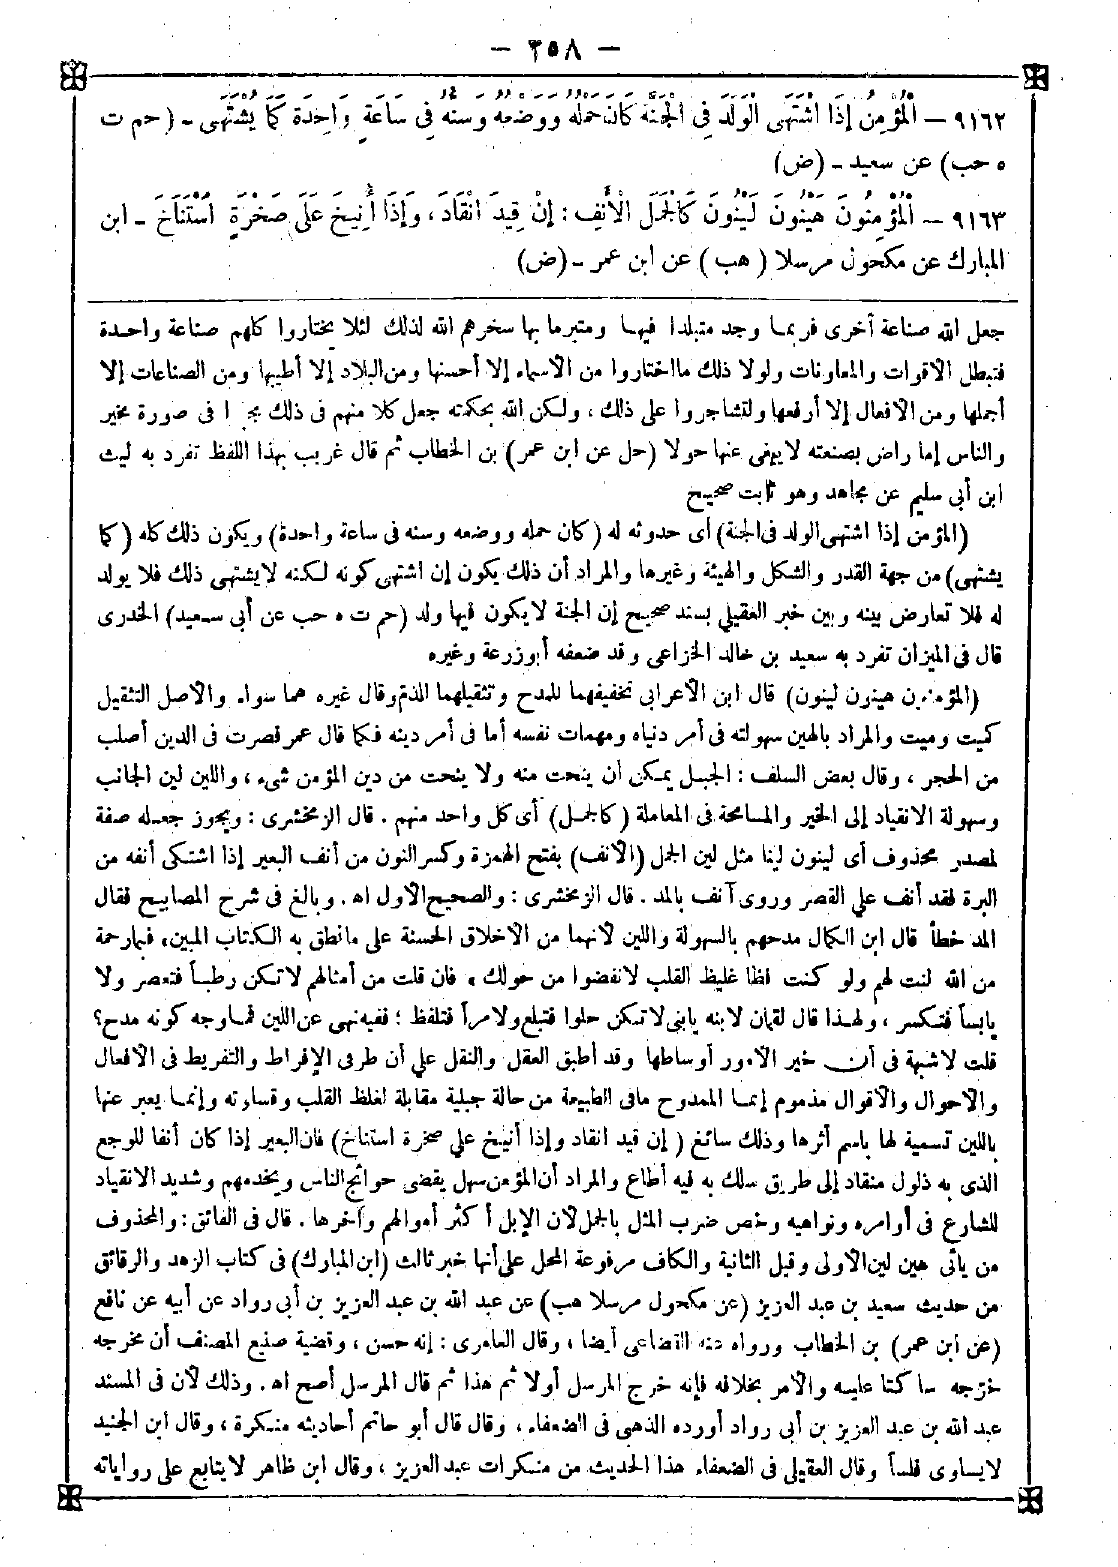 — ٢٥٨ —
٩١٦٢ — الْمُؤْمِنُ إِذَا اشْتَهَى الْوَلَدَ فِي الْجَنَّةِ كَانَ حَمْلُهُ وَوَضْعُهُ وَسِنُّهُ فِي سَاعَةٍ وَاحِدَةٍ كَمَا يُشْتَهَى - (حم ت
ه حب) عن سعيد - (ض)
٩١٦٣ — الْمُؤْمِنُونَ هَيِّنُونَ لَيِّنُونَ كَالْجَمَلِ الْأَنِفِ : إِنْ قِيدَ انْقَادَ ، وَإِذَا أُنِيخَ عَلَى صَخْرَةٍ اسْتَنَاخَ - ابن
المبارك عن مكحول مرسلا (هب) عن ابن عمر - (ض)
جعل الله صناعة أخرى فربما وجد متبلدا فيها ومتبرما بها سخرهم الله لذلك لئلا يختاروا كلهم صناعة واحدة
فتبطل الأقوات والمعاونات ولولا ذلك ما اختاروا من الأسماء إلا أحسنها ومن البلاد إلا أطيبها ومن الصناعات إلا
أجملها ومن الأفعال إلا أرفعها ولتشاجروا على ذلك ، ولكن الله بحكمته جعل كلا منهم فى ذلك ا فى صورة مخير
والناس إما راض بصنعته لا يبغى عنها حولا (حل عن ابن عمر) بن الخطاب ثم قال غريب بهذا اللفظ تفرد به ليث
ابن أبى سليم عن مجاهد وهو ثابت صحيح
(المؤمن إذا اشتهى الولد فى الجنة) أى حدوثه له (كان حمله ووضعه وسنه فى ساعة واحدة) ويكون ذلك كله (كما
يشتهى) من جهة القدر والشكل والهيئة وغيرها والمراد أن ذلك يكون إن اشتهى كونه لكنه لا يشتهى ذلك فلا يولد
له فلا تعارض بينه وبين خبر العقيلي بسند صحيح إن الجنة لا يكون فيها ولد (حم ت ه حب عن أبى سعيد) الخدرى
قال فى الميزان تفرد به سعيد بن خالد الخزاعى وقد ضعفه أبو زرعة وغيره
(المؤمنون هينون لينون) قال ابن الأعرابى تخفيفهما للمدح وتثقيلهما الذم وقال غيره هما سواء والأصل التثقيل
كميت وميت والمراد بالهين سهولته فى أمر دنياه ومهمات نفسه أما فى أمر دينه فكما قال عمر فصرت فى الدين أصلب
من الحجر ، وقال بعض السلف : الجبل يمكن أن ينحت منه ولا ينحت من دين المؤمن شىء ، واللين لين الجانب
وسهولة الانقياد إلى الخير والمسامحة فى المعاملة (كالجمل) أى كل واحد منهم . قال الزمخشرى : ويجوز جعله صفة
لمصدر محذوف أى لينون لينا مثل لين الجمل (الأنف) بفتح الهمزة وكسر النون من أنف البعير إذا اشتكى أنفه من
البرة فقد أنف على القصر وروى آنف بالمد . قال الزمخشرى : والصحيح الأول اه . وبالغ فى شرح المصابيح فقال
المد خطأ قال ابن الكمال مدحهم بالسهولة واللين لأنهما من الأخلاق الحسنة على ما نطق به الكتاب المبين ، فبما رحمة
من الله لنت لهم ولو كنت فظا غليظ القلب لانفضوا من حولك ، فان قلت من أمثالهم لا تكن رطباً فتعصر ولا
يابساً فتكسر ، ولهذا قال لقمان لابنه يابنى لا تكن حلوا فتبلع ولا مراً فتلفظ ؛ ففيه نهى عن اللين فما وجه كونه مدح ؟
قلت لا شبهة فى أن خير الأمور أوساطها وقد أطبق العقل والنقل على أن طرفى الإفراط والتفريط فى الأفعال
والأحوال والأقوال مذموم إنما الممدوح مافى الطبيعة من حالة جبلية مقابلة لغلظ القلب وقساوته وإنما يعبر عنها
باللين تسمية لها باسم أثرها وذلك سائغ (إن قيد انقاد وإذا أنيخ على صخرة استناخ) فان البعير إذا كان أنفا للوجع
الذى به ذلول منقاد إلى طريق سلك به فيه أطاع والمراد أن المؤمن سهل يقضى حوائج الناس ويخدمهم وشديد الانقياد
للشارع فى أوامره ونواهيه وخص ضرب المثل بالجمل لأن الإبل أكثر أموالهم وآخرها . قال فى الفائق : والمحذوف
من يأتى هين لين الأولى وقيل الثانية والكاف مرفوعة المحل على أنها خبر ثالث (ابن المبارك) فى كتاب الزهد والرقائق
من حديث سعيد بن عبد العزيز (عن مكحول مرسلا هب) عن عبد الله بن عبد العزيز بن أبى رواد عن أبيه عن نافع
(عن ابن عمر) بن الخطاب ورواه عنه القضاعى أيضا ، وقال العامرى : إنه حسن ، وقضية صنيع المصنف أن مخرجه
خرجه ساكتا عليه والأمر بخلافه فإنه خرج المرسل أولا ثم هذا ثم قال المرسل أصح اه . وذلك لأن فى المسند
عبد الله بن عبد العزيز بن أبى رواد أورده الذهبى فى الضعفاء ، وقال قال أبو حاتم أحاديثه منكرة ، وقال ابن الجنيد
لا يساوى فلساً وقال العقيلى فى الضعفاء هذا الحديث من منكرات عبد العزيز ، وقال ابن طاهر لا يتابع على رواياته